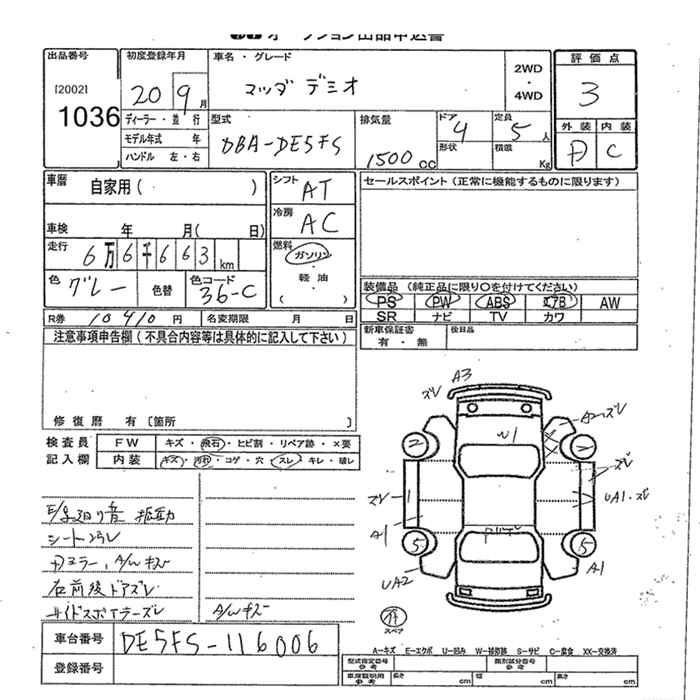 オークション出品申込書
出品番号 初度登録年月 車名・グレード 評価点
[2002]
1036
20 9月
マツダ デミオ
2WD
・
4WD
3
ディーラー・並行
モデル年式 年
ハンドル 左・右
型式
DBA-DE5FS
排気量
1500cc
ドア 4
形状
定員 5人
積載 Kg
外装 内装
D C
車歴 自家用( )
シフト AT
冷房 AC
セールスポイント(正常に機能するものに限ります)
車検 年 月( 日)
走行 6万6千663km
燃料 ガソリン
・
軽油
( )
色 グレー 色替 色コード 36-C
装備品(純正品に限り○を付けてください)
PS PW ABS エアB AW
SR ナビ TV カワ
R券 10410円 名変期限 月 日
新車保証書 後日品
有・無
注意事項申告欄(不具合内容等は具体的に記入して下さい)
修復歴 有〔箇所 〕
検査員 FW キズ・飛石・ヒビ割・リペア跡・×要
記入欄 内装 キズ・汚れ・コゲ・穴・スレ・キレ・破レ
A3
ズレ
U1
ズレ
2 2
ズレ
1
UA1・ズレ
A1
5 5
UA2
A1
スペア
E/g廻り音 振動
シート汚レ
Dミラー、A/Wキズ
右前後ドアズレ
サイドスポイラーズレ
A/Wキズ
車台番号 DE5FS-116006
登録番号
A-キズ E-エクボ U-凹み W-補修跡 S-サビ C-腐食 XX-交換済
型式指定番号 参考 類別区分番号 参考
車庫証明用 参考 長さ cm 幅 cm 高さ cm